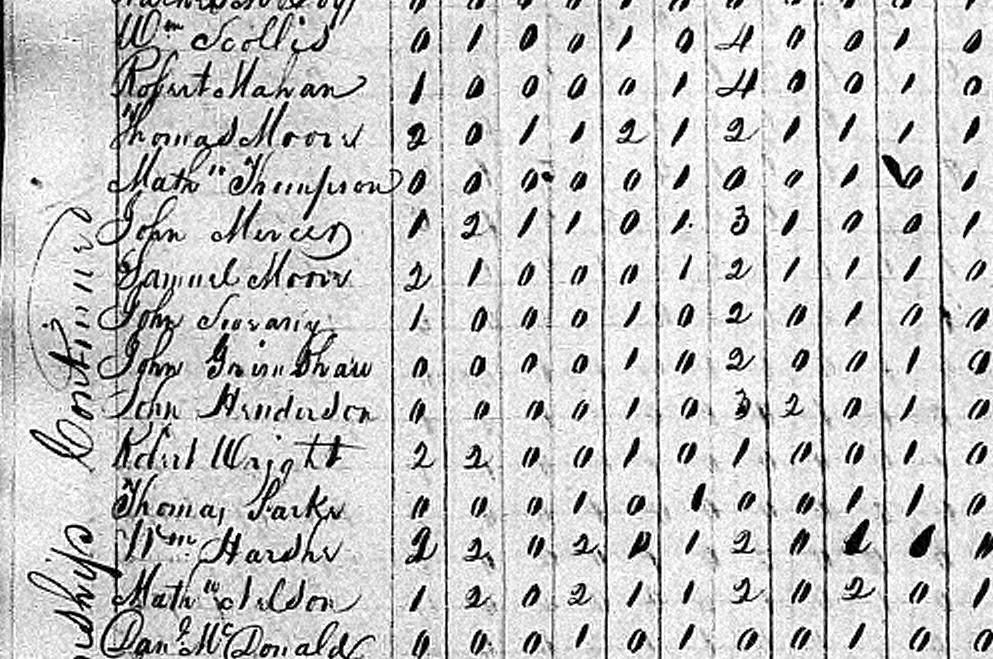 Wm Scollis 0 1 0 0 1 0 4 0 0 1 0
Robert Mahan 1 0 0 0 0 1 4 0 0 1 0
Thomas Moore 2 0 1 1 2 1 2 1 1 1 1
Mathw Thompson 0 0 0 0 0 1 0 0 1 0 1
John Mercer 1 2 1 1 0 1 3 1 0 0 1
Samuel Moore 2 1 0 0 0 1 2 1 1 1 0
John 1 0 0 0 1 0 2 0 1 0 0
John Grimshaw 0 0 0 0 1 0 2 0 0 1 0
John Henderson 0 0 0 0 1 0 3 2 0 1 0
Robert Wright 2 2 0 0 1 0 1 0 0 1 0
Thomas Parks 0 0 0 1 0 1 0 0 1 1 0
Wm Harshe 2 2 0 2 0 1 2 0 1
Mathw Nelson 1 2 0 2 1 1 2 0 2 0 1
Danl McDonald 0 0 0 1 0 1 0 0 1 0 0
ships Continued